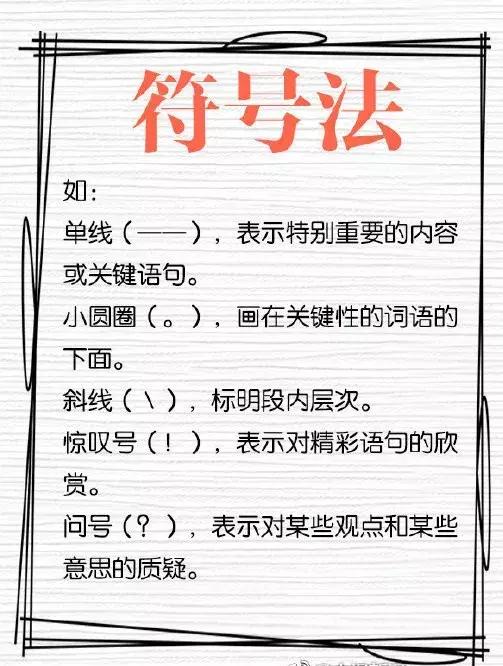 符号法
如：
单线（——），表示特别重要的内容
或关键语句。
小圆圈（。），画在关键性的词语的
下面。
斜线（\），标明段内层次。
惊叹号（！），表示对精彩语句的欣
赏。
问号（？），表示对某些观点和某些
意思的质疑。